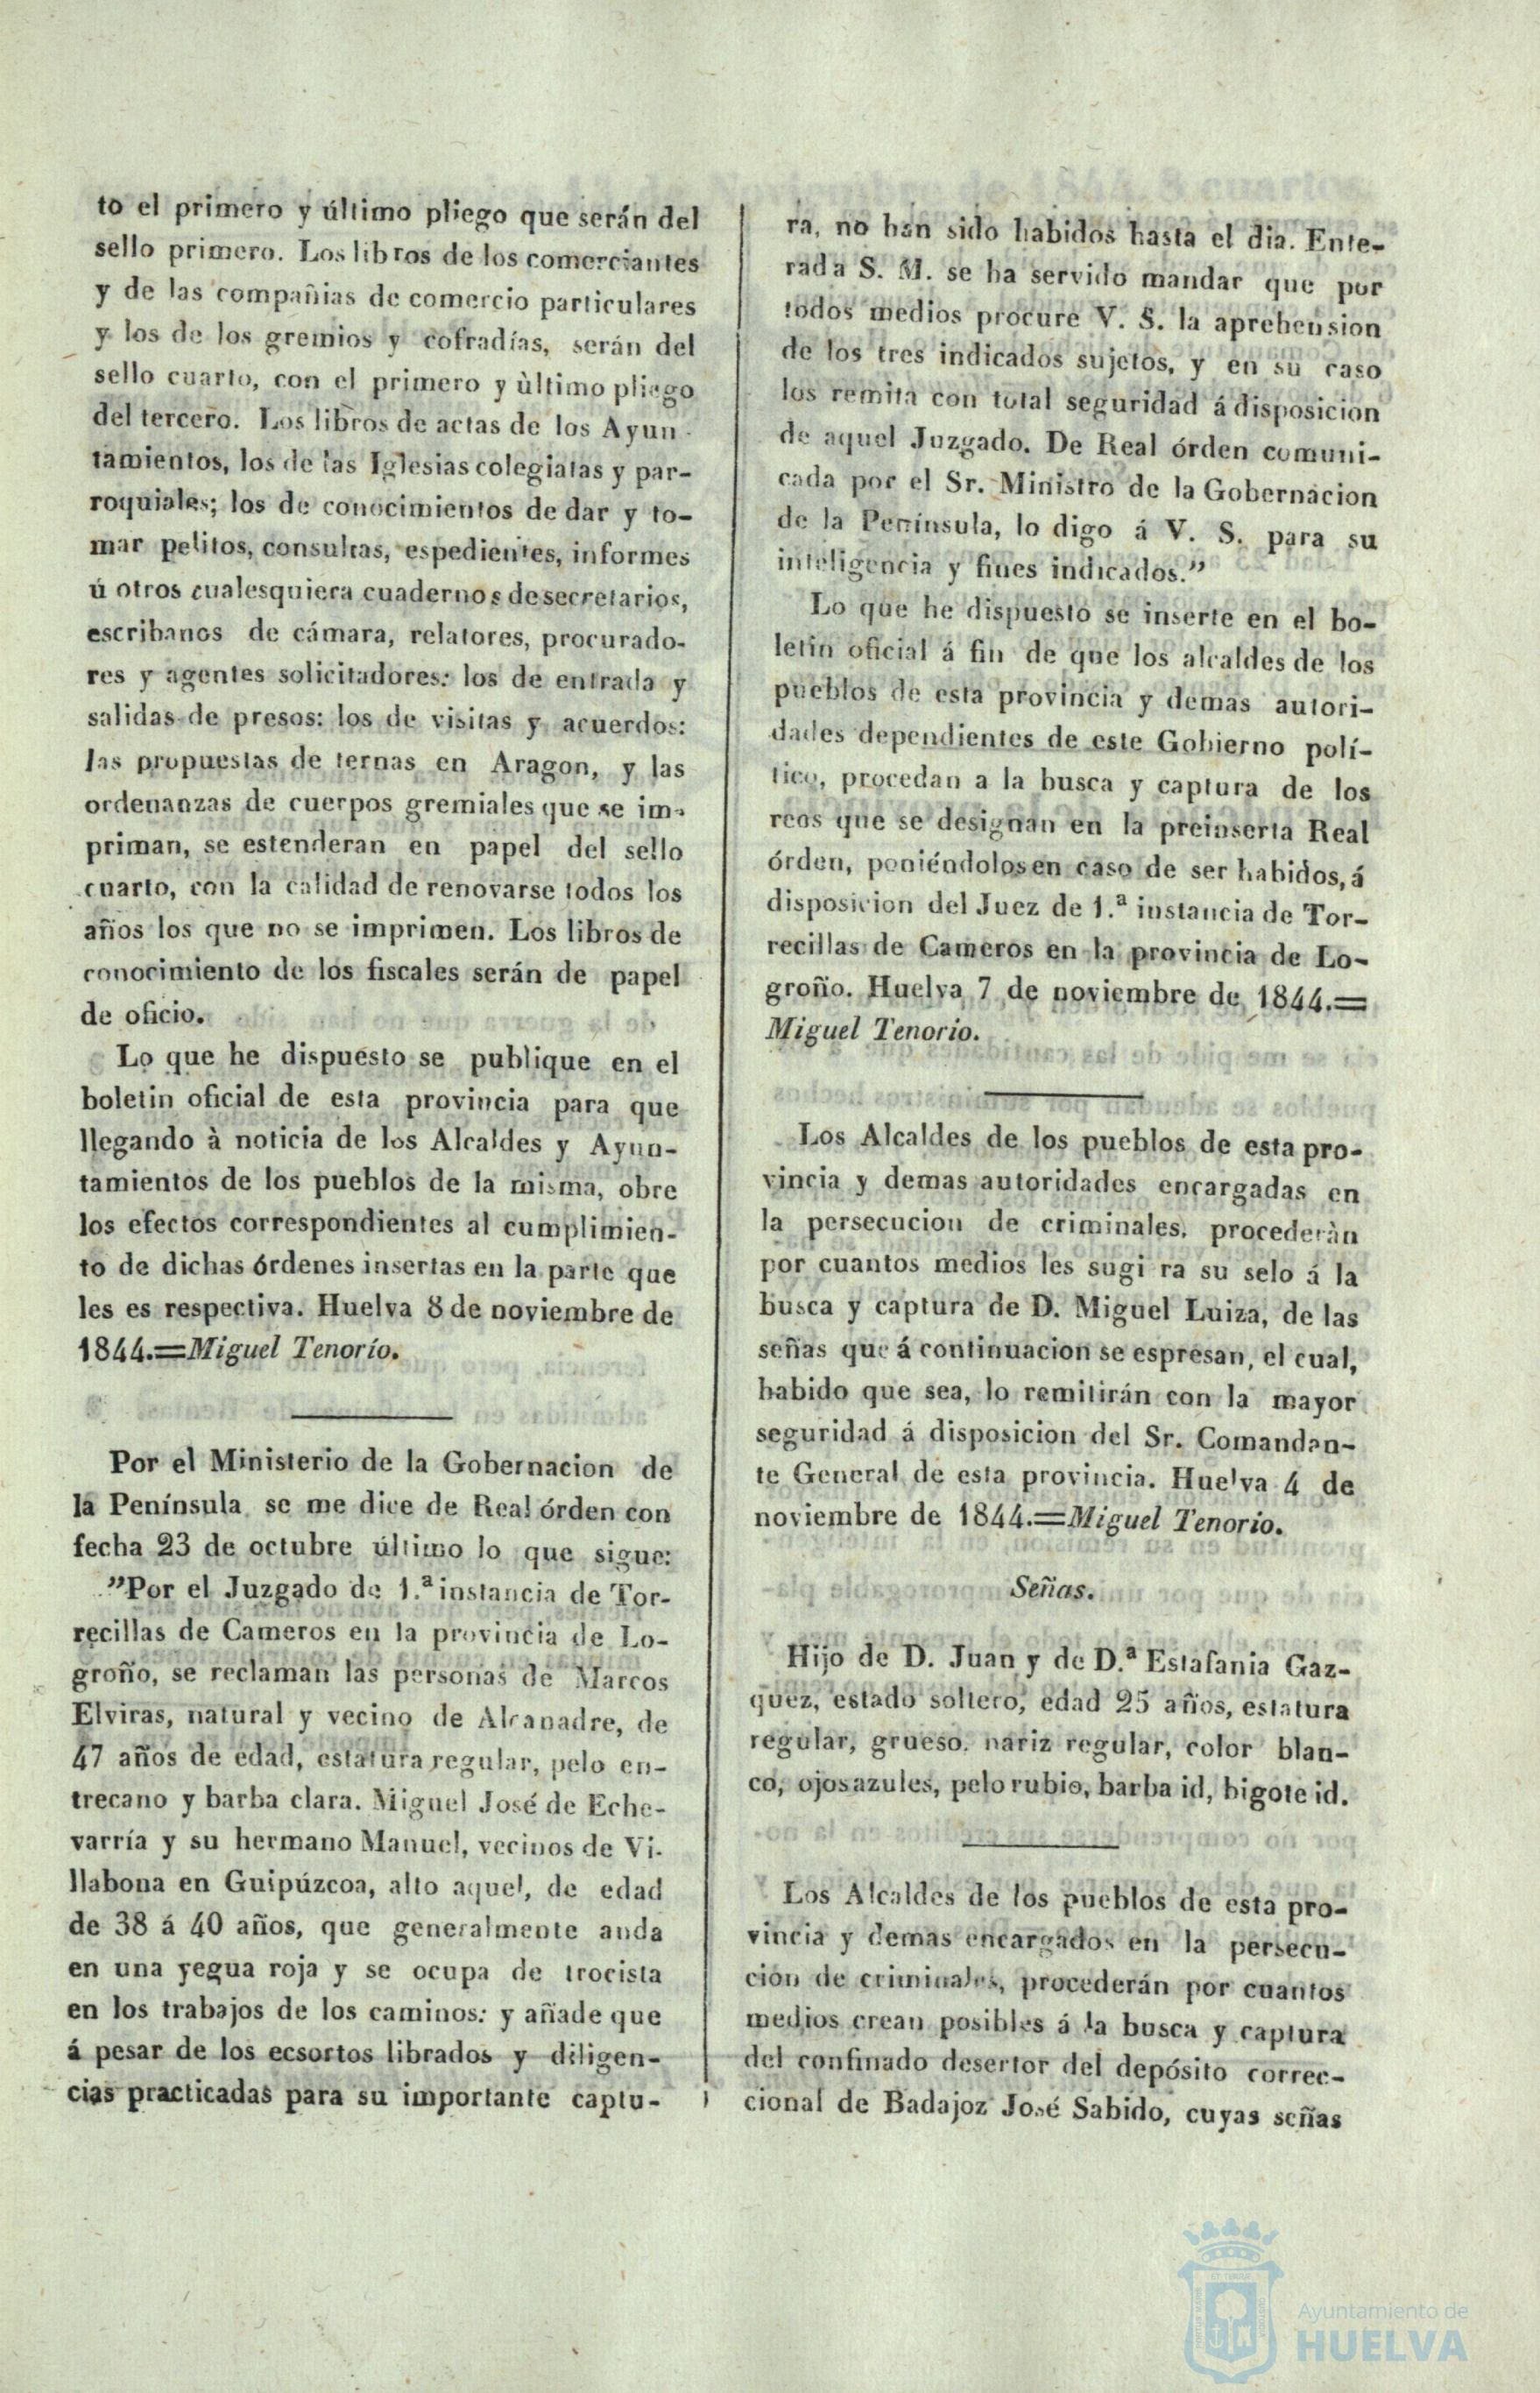 to el primero y último pliego que serán del
sello primero. Los libros de los comerciantes
y de las compañias de comercio particulares
y los de los gremios y cofradías, serán del
sello cuarto, con el primero y ùltimo pliego
del tercero. Los libros de actas de los Ayun-
tamientos, los de las Iglesias colegiatas y par-
roquiales; los de conocimientos de dar y to-
mar pelitos, consultas, espedientes, informes
ú otros cualesquiera cuadernos de secretarios,
escribanos de cámara, relatores, procurado-
res y agentes solicitadores: los de entrada y
salidas de presos: los de visitas y acuerdos:
las propuestas de ternas en Aragon, y las
ordenanzas de cuerpos gremiales que se im-
priman, se estenderan en papel del sello
cuarto, con la calidad de renovarse todos los
años los que no se imprimen. Los libros de
conocimiento de los fiscales serán de papel
de oficio.
Lo que he dispuesto se publique en el
boletin oficial de esta provincia para que
llegando à noticia de los Alcaldes y Ayun-
tamientos de los pueblos de la misma, obre
los efectos correspondientes al cumplimien-
to de dichas órdenes insertas en la parte que
les es respectiva. Huelva 8 de noviembre de
1844.=Miguel Tenorío.
Por el Ministerio de la Gobernacion de
la Península se me dice de Real órden con
fecha 23 de octubre último lo que sigue:
"Por el Juzgado de 1.ª instancia de Tor-
recillas de Cameros en la provincia de Lo-
groño, se reclaman las personas de Marcos
Elviras, natural y vecino de Alcanadre, de
47 años de edad, estatura regular, pelo en-
trecano y barba clara. Miguel José de Eche-
varría y su hermano Manuel, vecinos de Vi-
llabona en Guipúzcoa, alto aquel, de edad
de 38 á 40 años, que generalmente anda
en una yegua roja y se ocupa de trocista
en los trabajos de los caminos: y añade que
á pesar de los ecsortos librados y diligen-
cias practicadas para su importante captu-
ra, no han sido habidos hasta el dia. Ente-
rada S. M. se ha servido mandar que por
todos medios procure V. S. la aprehension
de los tres indicados sujetos, y en su caso
los remita con total seguridad á disposicion
de aquel Juzgado. De Real órden comuni-
cada por el Sr. Ministro de la Gobernacion
de la Península, lo digo á V. S. para su
inteligencia y fines indicados."
Lo que he dispuesto se inserte en el bo-
letin oficial á fin de que los alcaldes de los
pueblos de esta provincia y demas autori-
dades dependientes de este Gobierno polí-
tico, procedan a la busca y captura de los
reos que se designan en la preinserta Real
órden, poniéndolos en caso de ser habidos, á
disposicion del Juez de 1.ª instancia de Tor-
recillas de Cameros en la provincia de Lo-
groño. Huelva 7 de noviembre de 1844.=
Miguel Tenorio.
Los Alcaldes de los pueblos de esta pro-
vincia y demas autoridades encargadas en
la persecucion de criminales, procederàn
por cuantos medios les sugi ra su selo á la
busca y captura de D. Miguel Luiza, de las
señas que á continuacion se espresan, el cual,
habido que sea, lo remitirán con la mayor
seguridad á disposicion del Sr. Comandan-
te General de esta provincia. Huelva 4 de
noviembre de 1844.=Miguel Tenorio.
Señas.
Hijo de D. Juan y de D.ª Estafania Gaz-
quez, estado soltero, edad 25 años, estatura
regular, grueso, nariz regular, color blan-
co, ojos azules, pelo rubio, barba id, bigote id.
Los Alcaldes de los pueblos de esta pro-
vincia y demas encargados en la persecu-
cion de criminales, procederán por cuantos
medios crean posibles á la busca y captura
del confinado desertor del depósito correc-
cional de Badajoz José Sabido, cuyas señas
Ayuntamiento de
HUELVA